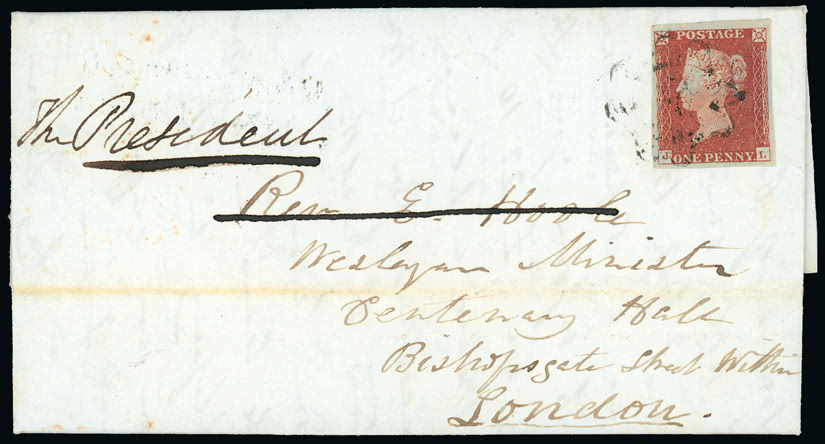 POSTAGE
J ONE PENNY L
The President
Rev E. Hoole
Wesleyan Minister
Centenary Hall
Bishopsgate Street Within
London.